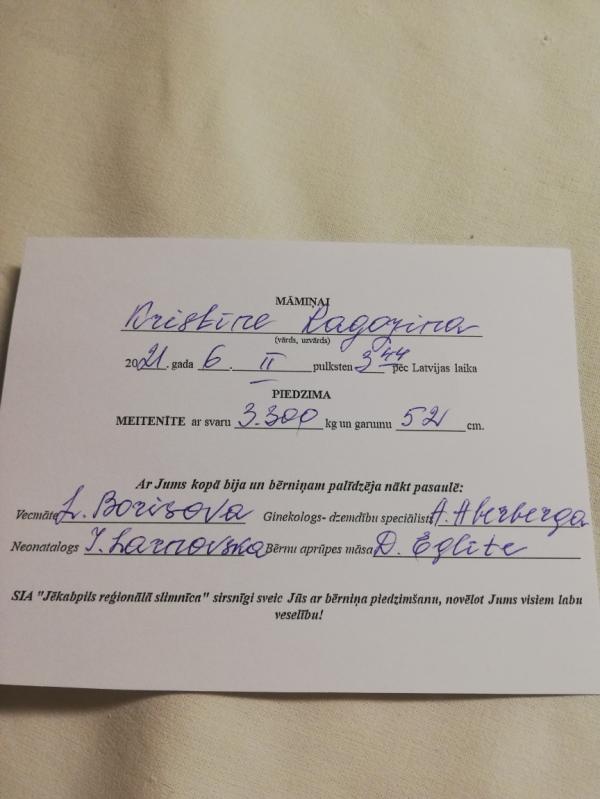 MĀMIŅAI
Kristīne Ragozina
(vārds, uzvārds)
2021. gada 6. II pulksten 3 44 pēc Latvijas laika
PIEDZIMA
MEITENĪTE ar svaru 3.300 kg un garumu 52 cm.
Ar Jums kopā bija un bērniņam palīdzēja nākt pasaulē:
Vecmāte L. Borisova Ginekologs- dzemdību speciālists A. Aberberga
Neonatalogs Bērnu aprūpes māsa D. Eglīte
SIA "Jēkabpils reģionālā slimnīca" sirsnīgi sveic Jūs ar bērniņa piedzimšanu, novēlot Jums visiem labu
veselību!